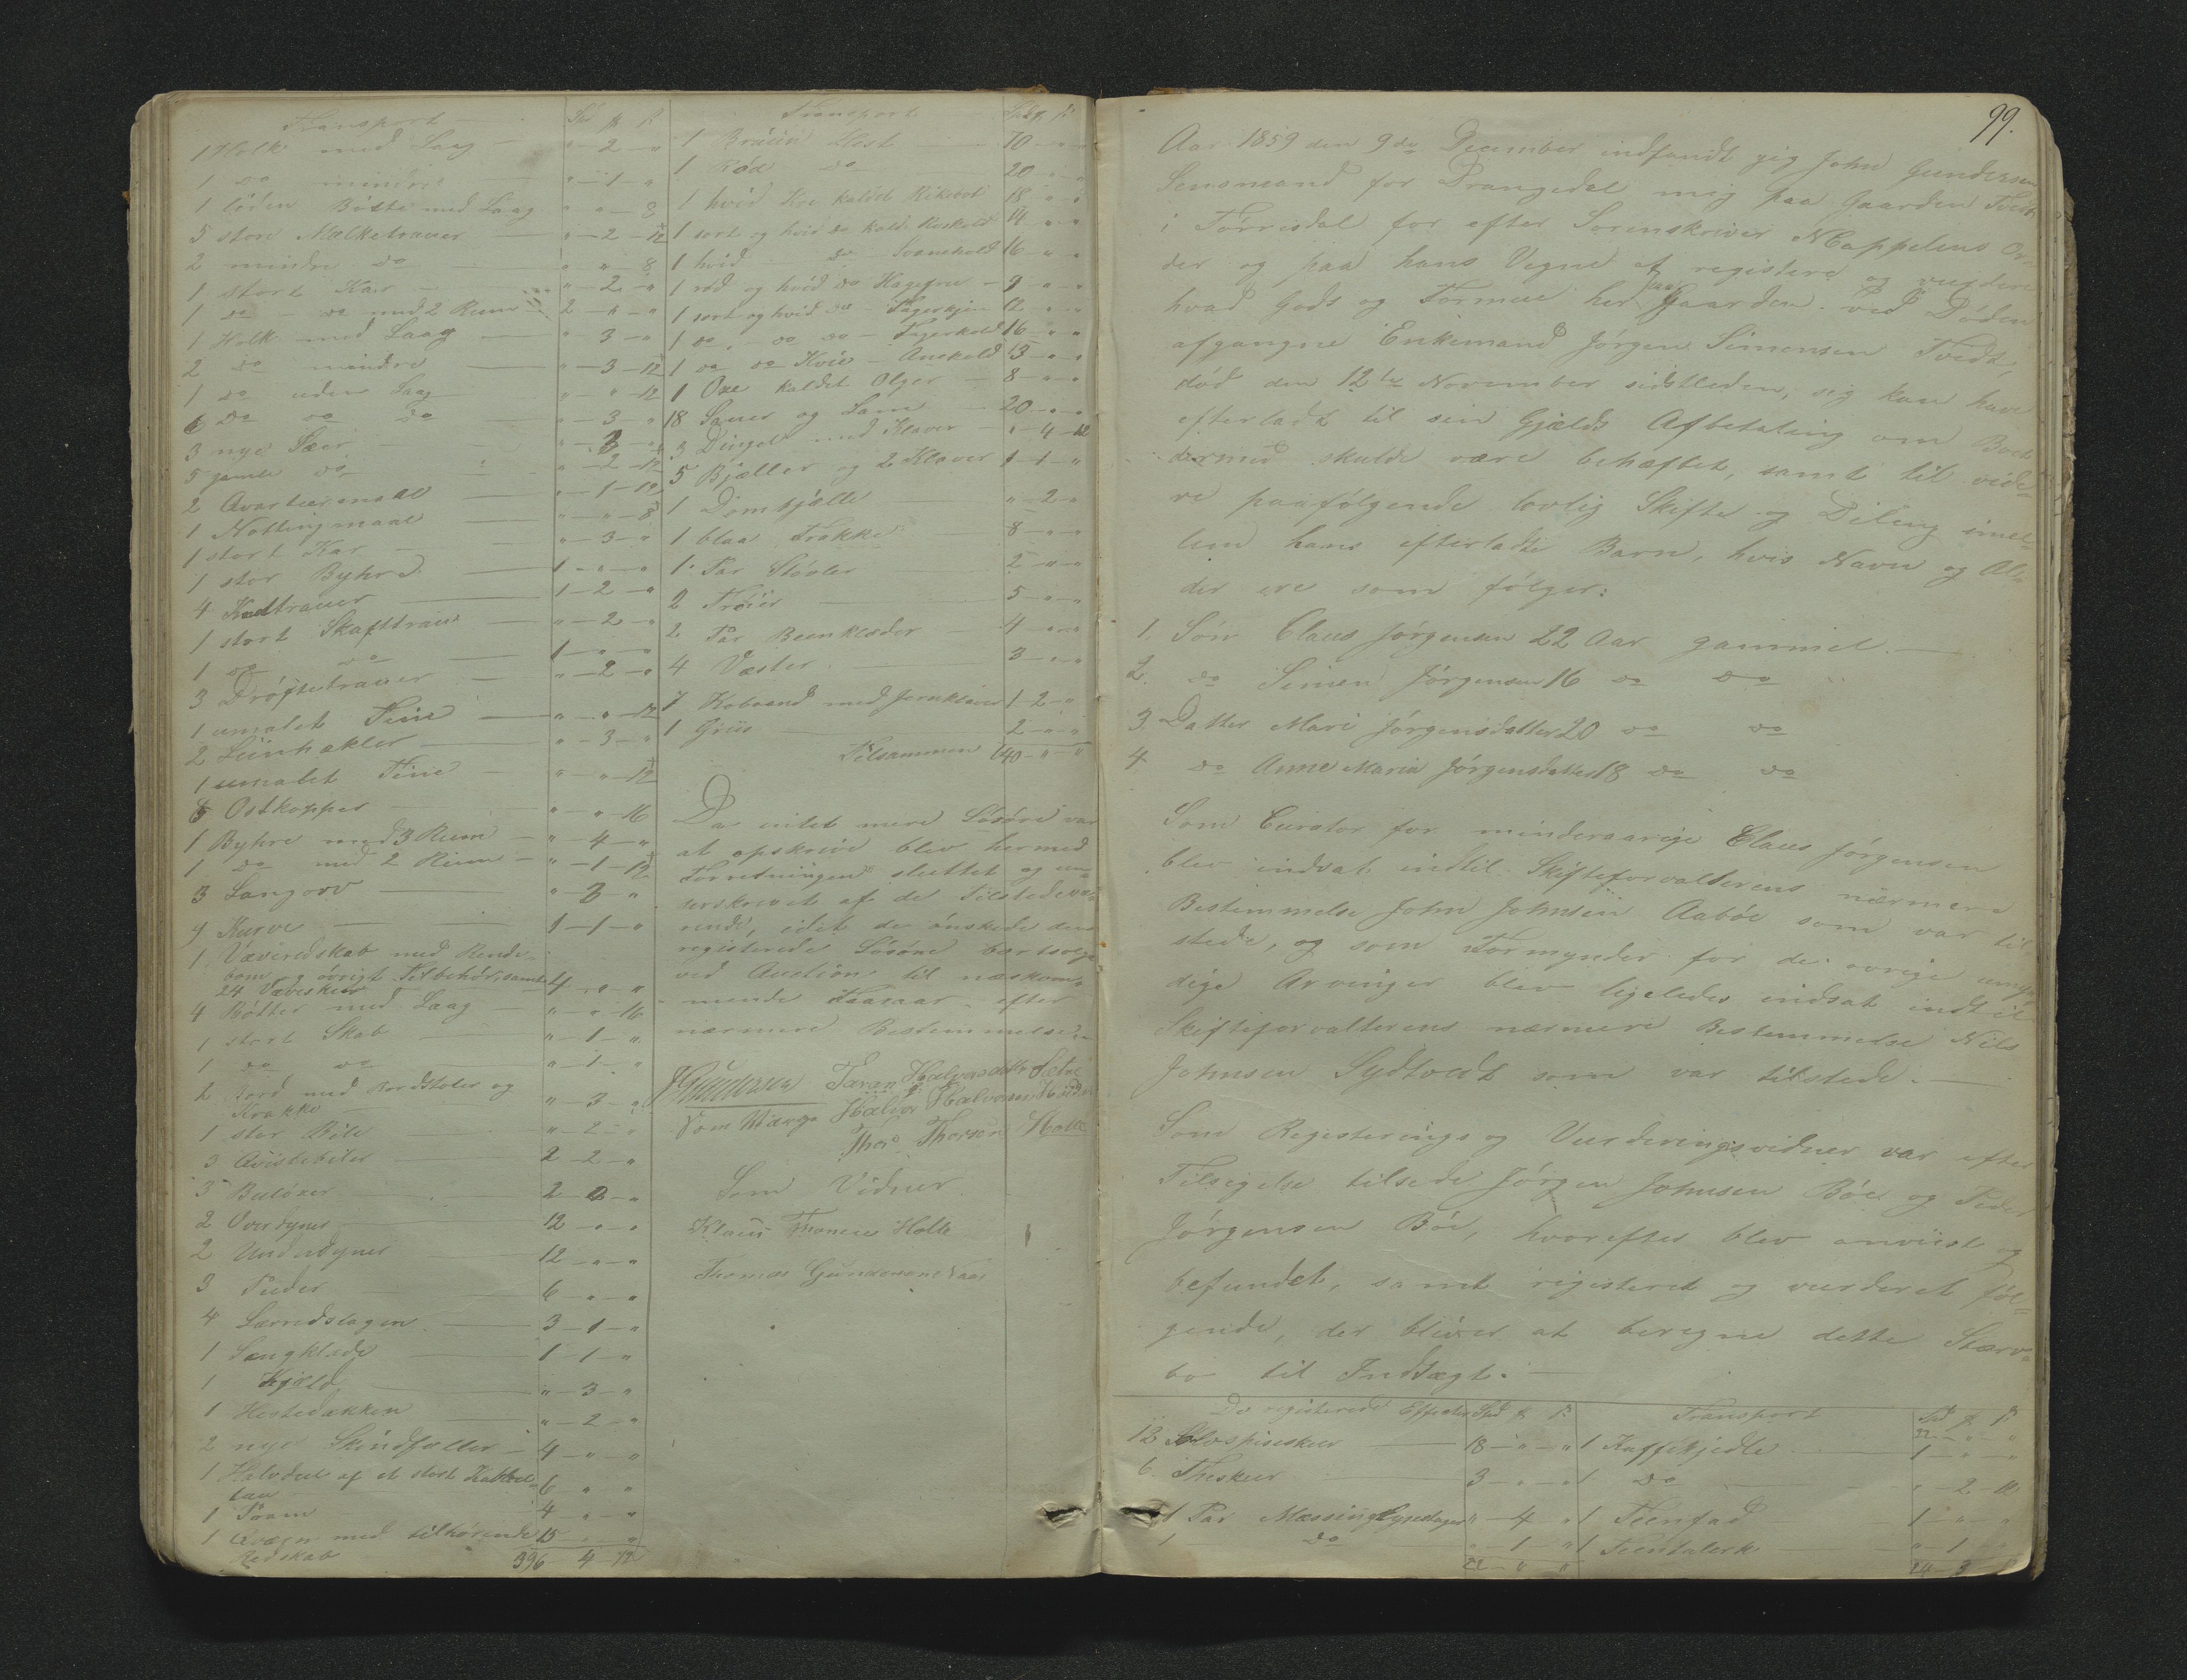 Transport — Spd ₰ ſs
1 Holk med Laag — " - 2 - "
1 do mindre — " - 1 - "
1 liden Bøtte med Laag " - " - 8
5 store Mælketrauer — " - 2 - 12
2 mindre do — " - " - 8
1 stort Kar — " - 2 - "
1 do - do med 2 Rum 2 - " - "
1 Holk med Laag — " - 3 - "
2 do mindre — " - 3 - 12
1 do uden Laag — " - " - 12
6 do do do — " - 3 - "
3 nye Sæer
5 gamle do — " - 2 - 12
2
1 Nottingmaal — " - " - 8
1 stort Kar — " - 3 - "
1 stor Byhre — 1 - " - "
4 Kodtrauer — 1 - 2 - "
1 stort Skafttrau — " - 2 - "
1 do do — 1 - " - "
3 Drøftetrauer — " - 2 - "
1 umalet Tine — " - " - 12
2 Liinhekler — " - 3 - "
1 umalet Tine — " - " - 12
6 Ostkopper — " - " - 16
1 Byhre med 3 Rum — " - 4 - "
1 do med 2 Rum — " - 1 - 12
3 Langorv — " - 2 - "
9 Kurve — 1 - 1 - "
1 Væveredskab med Rende-
bom og øvrigt Tilbehør, samt
24 Væveskeer 4 - " - "
4 Bøtter med Laag — " - " - 16
1 stort Skab — " - 1 - "
1 do do — " - 1 - "
2 Bord med Bordstoler og
Krakke — " - 3 - "
1 stor Bile — " - 2 - "
3 — 2 - 2 - "
3 Buløxer — 2 - 2 - "
2 Overdyner — 12 - " - "
2 Underdyner — 12 - " - "
3 Puder — 6 - " - "
4 Lærredslagen — 3 - 1 - "
1 Sengklæde — 1 - 1 - "
1 Kjæld — " - 3 - "
1 Hestedækken — " - 2 - "
2 nye Skindfæller — 4 - " - "
1 Halvdeel af et stort
tau 6 " "
1 Pram 4 - " - "
1 Qværn med tilhørende 15 - " - "
Redskab 396 4 - 12
Transport Spd ₰ ſs
1 Bruun Hest — 10 - " - "
1 Rød do — 20 - " - "
1 hvid Koe kaldet 18 - " - "
1 sort og hvid do kaldt Roskold 14 - " - "
1 hvid do Svanehold 16 - " - "
1 rød og hvid do Hagefrue — 9 - " - "
1 sort og hvid do — Fagerkjin 12 - " - "
1 do - do do — Fagerkold 16 - " - "
1 do do Kvie — 13 - " - "
1 Oxe kaldet Olger — 8 - " - "
18 Sauer og Lam — 20 - " - "
3 med Klaver — " - 4 - 12
5 Bjæller og 2 Klaver 1 - 1 - "
1 Dombjælle — " - 2 - "
1 blaa Frakke — 8 - " - "
1 Par Støvler — 2 - " - "
2 Trøier — 5 - " - "
2 Par Beenklæder — 4 - " - "
4 Væster — 3 - " - "
7 Kobaand med Jernklaver 1 - 2 - "
1 Griis — 2 - " - "
Tilsammen 640 - " - "
Da intet mere Løsøre var
at opskrive blev hermed
Forretningen sluttet og un-
derskrevet af de Tilstedevæ-
rende, idet de ønskede den
registrerede Løsøre bortsolgt
ved Auction til næstkom-
mende Vaaraar efter
nærmere Bestemmelse.
JGundersen Taran Halvorsdatter Sætre
som Værge Halvor Halvorsen
Thor Thorsen Holte
Som Vidner
Klaus Thomesen Holte
Thomas Gundersen Naas
99.
Aar 1859 den 9de December indfandt jeg John Gundersen
Lensmand for Drangedal mig paa Gaarden Tvedt
i Tørrisdal for efter Sorenskriver NCappelens Or-
der og paa hans Vegne at registere og vurdere
hvad Gods og Formue her paa Gaarden ved Døden
afgangne Enkemand Jørgen Simensen Tvedt,
død den 12te November sidstleden, sig kan have
efterladt til sin Gjælds Afbetaling om Boet
dermed skulde være behæftet, samt til vide-
re paafølgende lovlig Skifte og Deling imel-
lem hans efterladte Barn, hvis Navn og Al-
der ere som følger:
1. Søn Claus Jørgensen 22 Aar gammel. —
2. do Simen Jørgensen 16 do do
3. Datter Mari Jørgensdatter 20 do do
4. do Anne Maria Jørgensdatter 18 do do
Som Curator for minderaarige Claus Jørgensen
blev indsat indtil Skifteforvalterens nærmere
Bestemmelse John Johnsen Aabøe som var til-
stede, og som Formynder for de øvrige umyn-
dige Arvinger blev ligeledes indsat indtil
Skifteforvalterens nærmere Bestemmelse Nils
Johnsen Sydtvedt som var tilstede. —
Som Registerings og Vurderingsvidner var efter
Tilsigelse tilstede Jørgen Johnsen Bøe og Peder
Jørgensen Bøe, hvorefter blev anviist og
befundet, samt registeret og vurderet føl-
gende, der bliver at beregne dette Stærv-
bo til Indtægt. —
De registerede Effecter Spd ₰ ſs
12 Sølvspiseskeer — 18 - " - "
6 Theskeer — 3 - " - "
1 Par Messinglysestager " - 4 - "
1 do " - 1 - "
22 - " - "
Transport Spd ₰ ſs
22 - " - "
1 Kaffekjedle — 1 - " - "
1 do — " - 2 -
1 Teenfad — 1 - " - "
1 Teentalerk — " - 1 - "
24 - 3